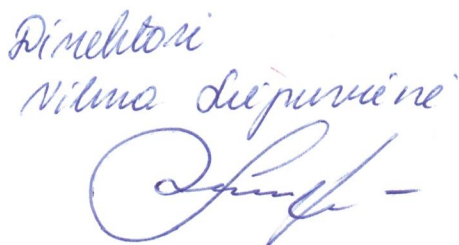 Direktorė
Vilma Liepuvienė